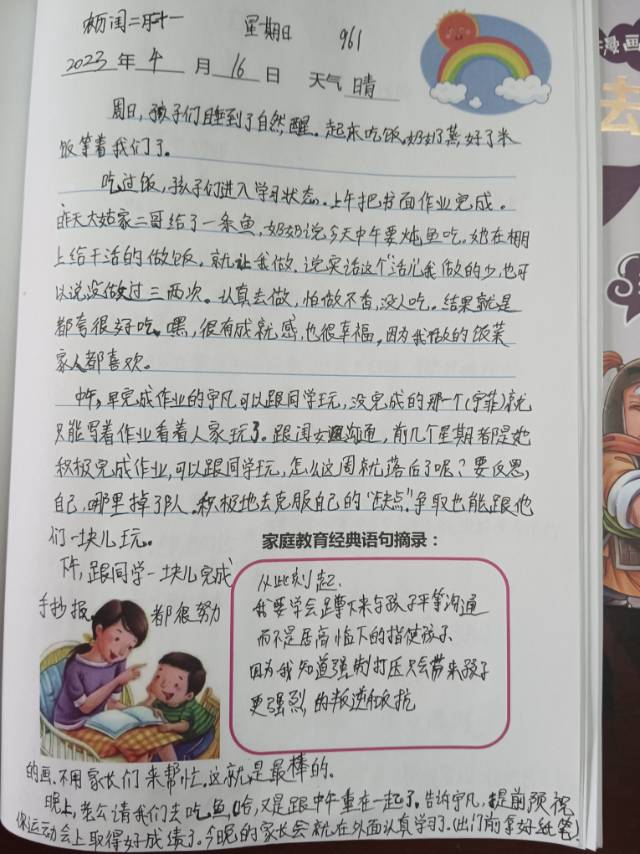 星期日 961
2023年4月16日 天气晴
周日,孩子们睡到了自然醒。起床吃饭,奶奶蒸好了米
饭等着我们了。
吃过饭,孩子们进入学习状态。上午把书面作业完成。
昨天大姑家二哥给了一条鱼,奶奶说今天中午要炖鱼吃。她在棚
上给干活的做饭。就让我做,说实话这个"活儿"我做的少,也可
以说没做过三两次。认真去做,怕做不香,没人吃。结果就是
都夸很好吃。嘿,很有成就感,也很幸福,因为我做的饭菜
家人都喜欢。
中午,早完成作业的宇凡可以跟同学玩,没完成的那一个(宇菲)就
只能写着作业看着人家玩了。跟闺女沟通,前几个星期都是她
积极完成作业,可以跟同学玩,怎么这周就落后了呢?要反思,
自己,哪里掉了队。积极地去克服自己的"缺点"。争取也能跟他
们一块儿玩。
家庭教育经典语句摘录:
从此刻起:
我要学会蹲下来与孩子平等沟通
而不是居高临下的指使孩子
因为我知道强制打压只会带来孩子
更强烈的叛逆和反抗
下午,跟同学一块儿完成
手抄报。都很努力
的画,不用家长们来帮忙。这就是最棒的。
晚上,老公请我们去吃鱼,哈,又是跟中午重在一起了。告诉宇凡,提前预祝
运动会上取得好成绩了。今晚的家长会就在外面认真学习了。(出门前拿好纸笔)
漫画
去